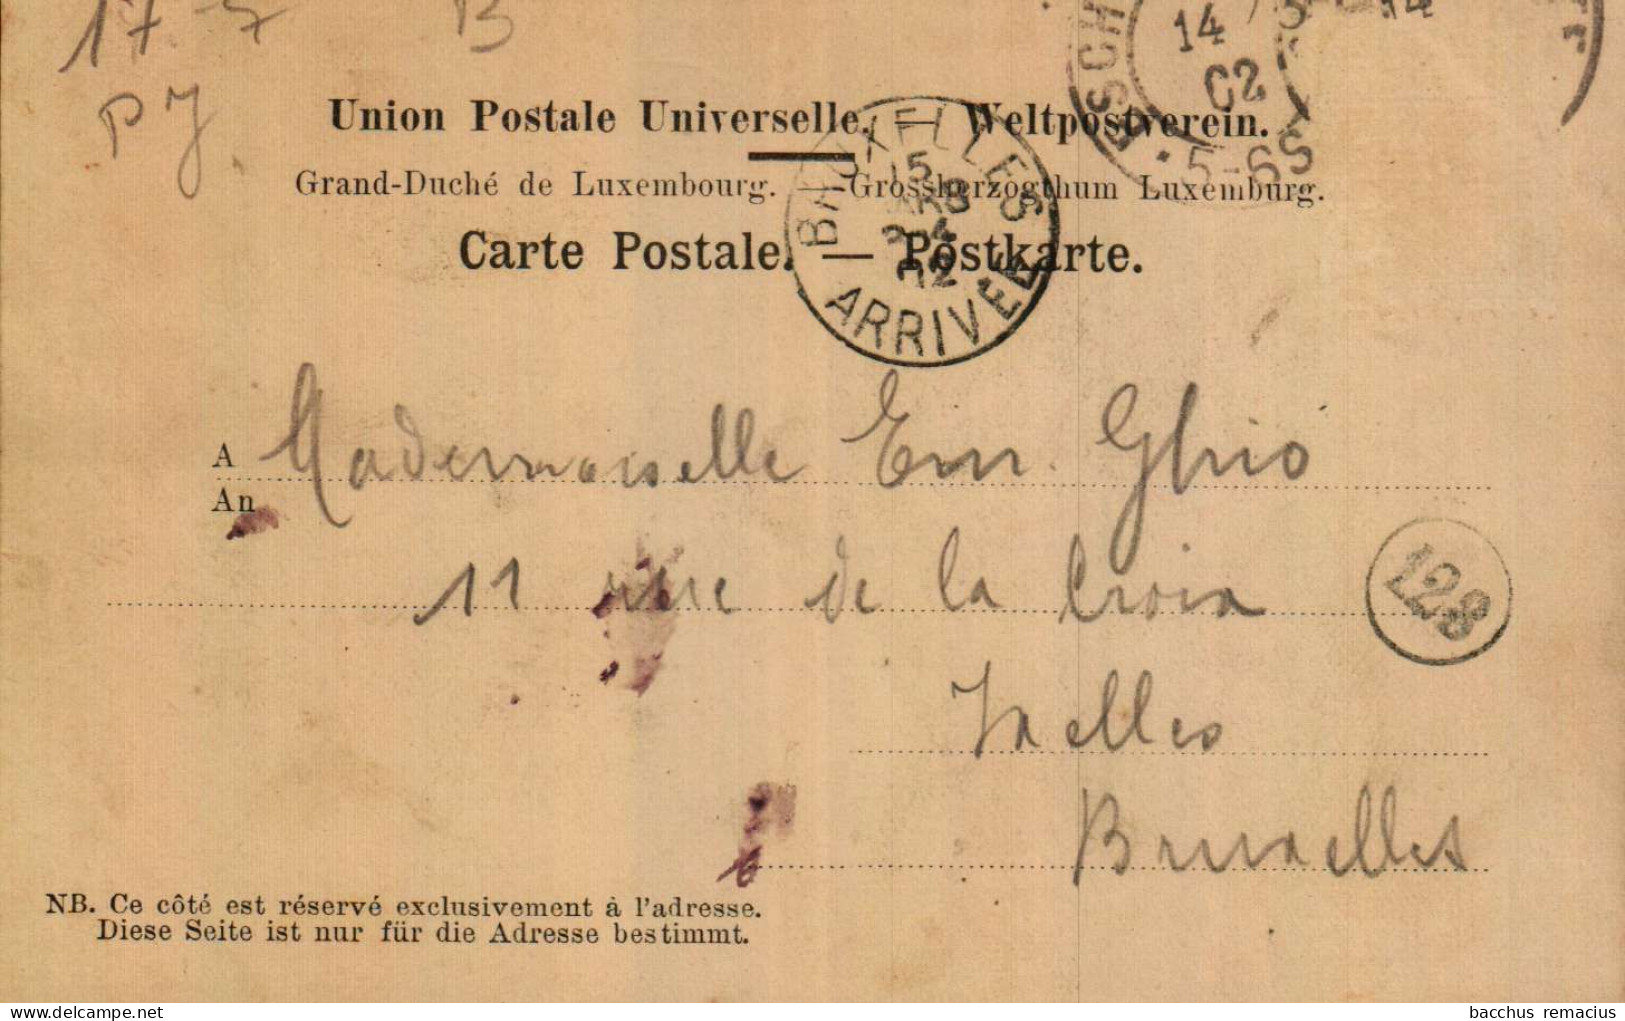 17-7 B
PJ
14
14
02
ESCH
5-6S
Union Postale Universelle. — Weltpostverein.
Grand-Duché de Luxembourg. — Grossherzogthum Luxemburg.
Carte Postale. — Postkarte.
BRUXELLES
15
02
ARRIVÉE
A Mademoiselle Em. Ghio
An
11 rue de la Croix
128
Ixelles
Bruxelles
NB. Ce côté est réservé exclusivement à l'adresse.
Diese Seite ist nur für die Adresse bestimmt.
bacchus remacius
delcampe.net